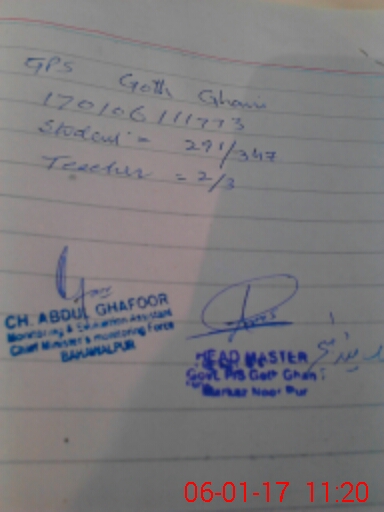 GPS Goth Ghani
170106111773
Student = 291/347
Teacher = 2/3
CH. ABDUL GHAFOOR
Monitoring & Evaluation Assistant
Chief Minister's monitoring Force
BAHAWALPUR
HEAD MASTER
Govt. P/S Goth Ghani
Markaz Noor Pur
06-01-17 11:20